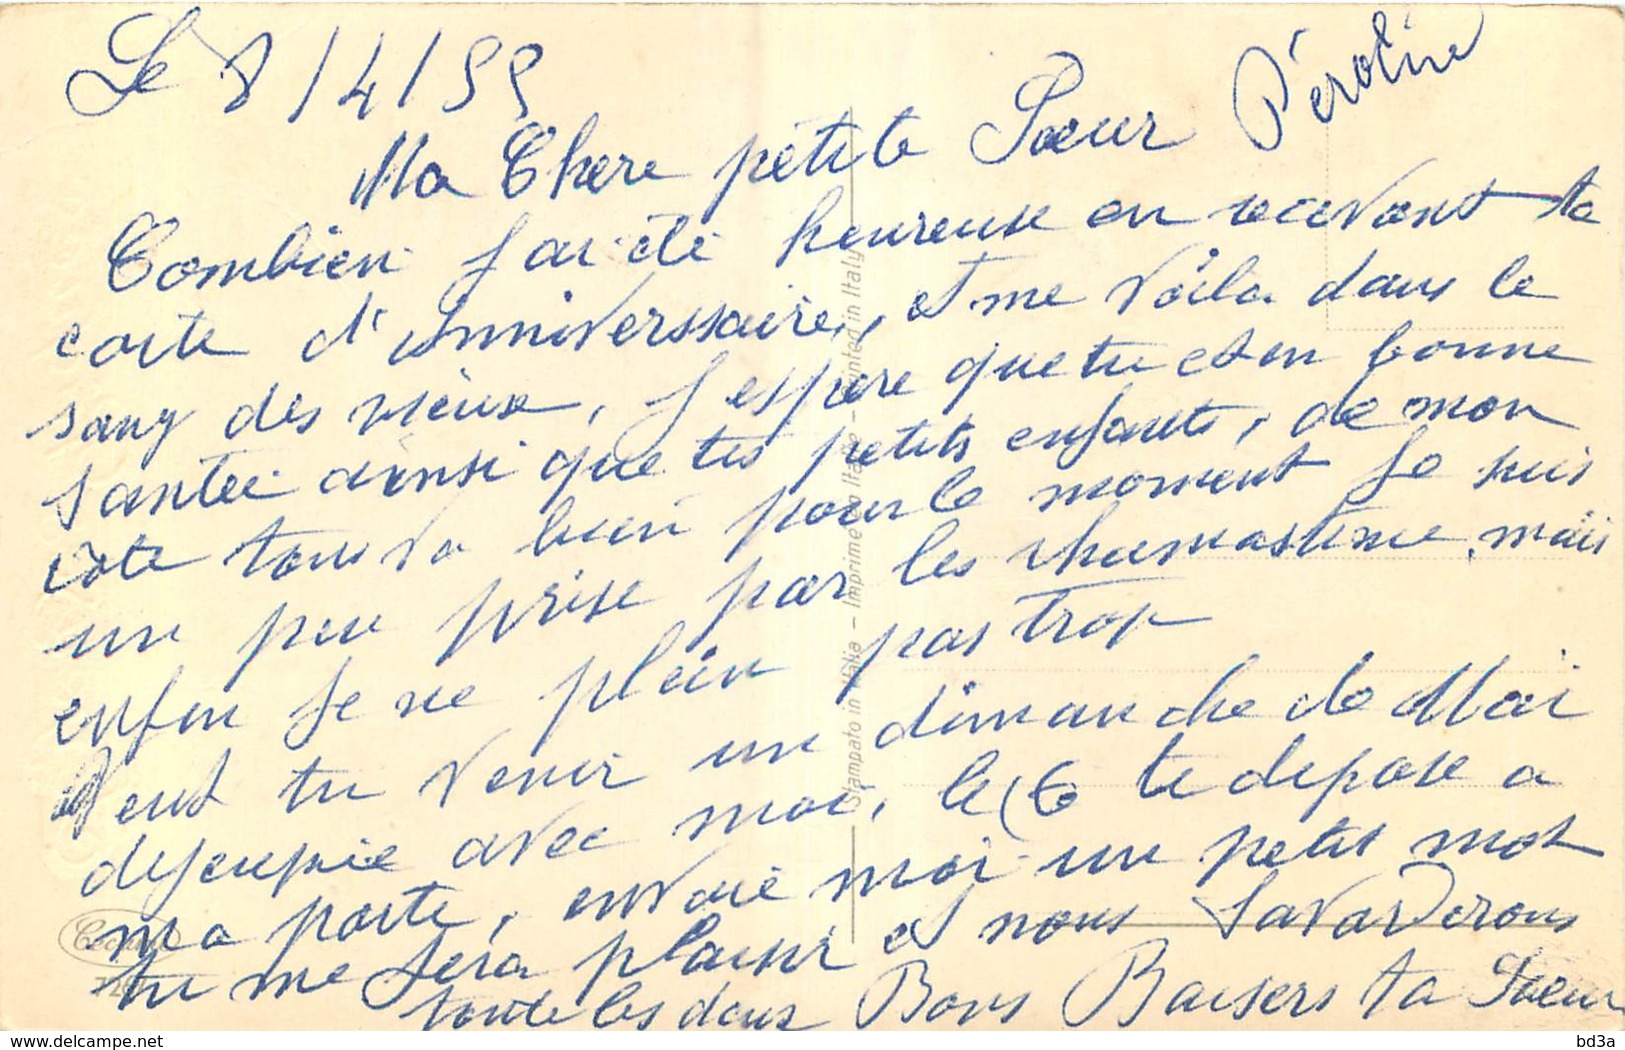 Le 8/4/55
Ma Chere petite Sœur Péroline
Combien j'ai été heureuse en recevant ta
carte d'Anniverssaire, et me voila dans le
rang des vieux, J espere que tu et en bonne
santée ainsi que tes petits enfants, de mon
côte tous va bien pour le moment Je suis
un peu prise par les rhumastime, mais
enfin Je ne plain pas trop
Peut tu venir un dimanche de Mai
dejeunée avec moi, le 6 te depose a
ma porte, envoie moi un petit mot
tu me fera plaisir et nous bavarderons
toute les deux Bons Baisers ta Sœur
Stampato in Italia – Imprimé en Italie – Printed in Italy
Cecami
delcampe.net
bd3a